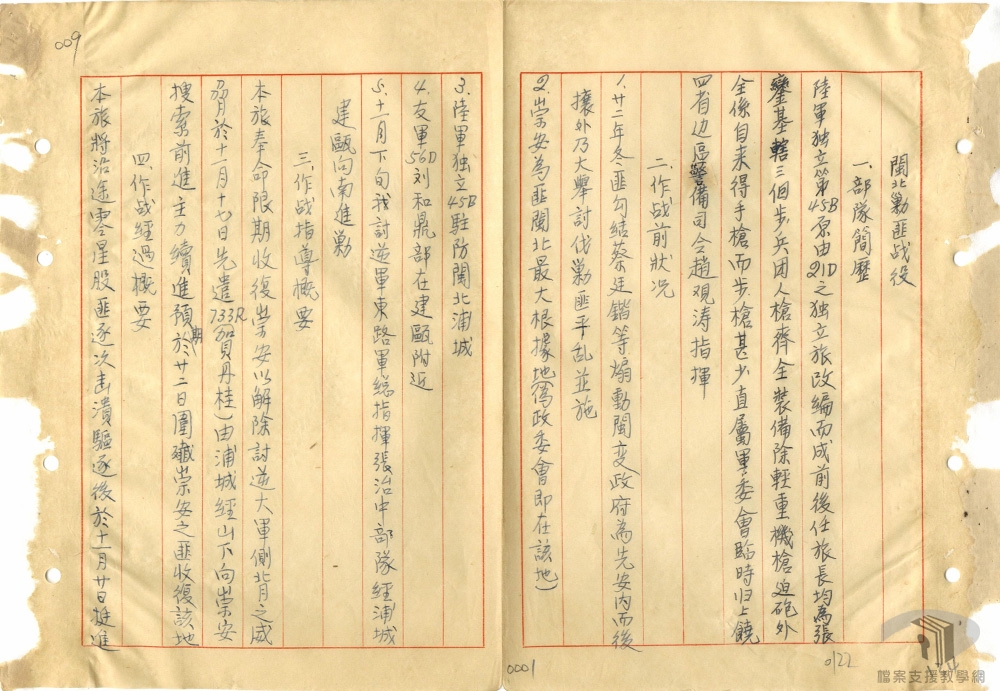 閩北剿匪战役
一、部隊簡歷
陸軍独立第45B原由21D之独立旅改編而成前後任旅長均為張
鑾基轄三個步兵团人槍齊全装備除輕重機槍迫砲外
全係自来得手槍而步槍甚少直屬軍委會臨時归上饒
四省边區警備司令趙观涛指揮
二、作战前狀况
1.廿二年冬匪勾結蔡廷鍇等煽動閩变政府為先安内而後
攘外乃大舉討伐剿匪平乱並施
2.崇安為匪閩北最大根據地(偽政委會即在該地)
3.陸軍独立45B駐防閩北浦城
4.友軍56D刘和鼎部在建甌附近
5.十一月下旬我討逆軍東路軍総指揮張治中部隊経浦城
建甌向南進剿
三、作战指導概要
本旅奉命限期收復崇安以解除討逆大軍側背之威
脅於十一月十七日先遣733R(賀丹桂)由浦城經山下向崇安
搜索前進主力續進預期於廿二日圍殲崇安之匪收復該地
四、作战經過概要
本旅將沿途零星股匪逐次击潰驅逐後於十一月廿日挺進
009
0001
0122
檔案支援教學網